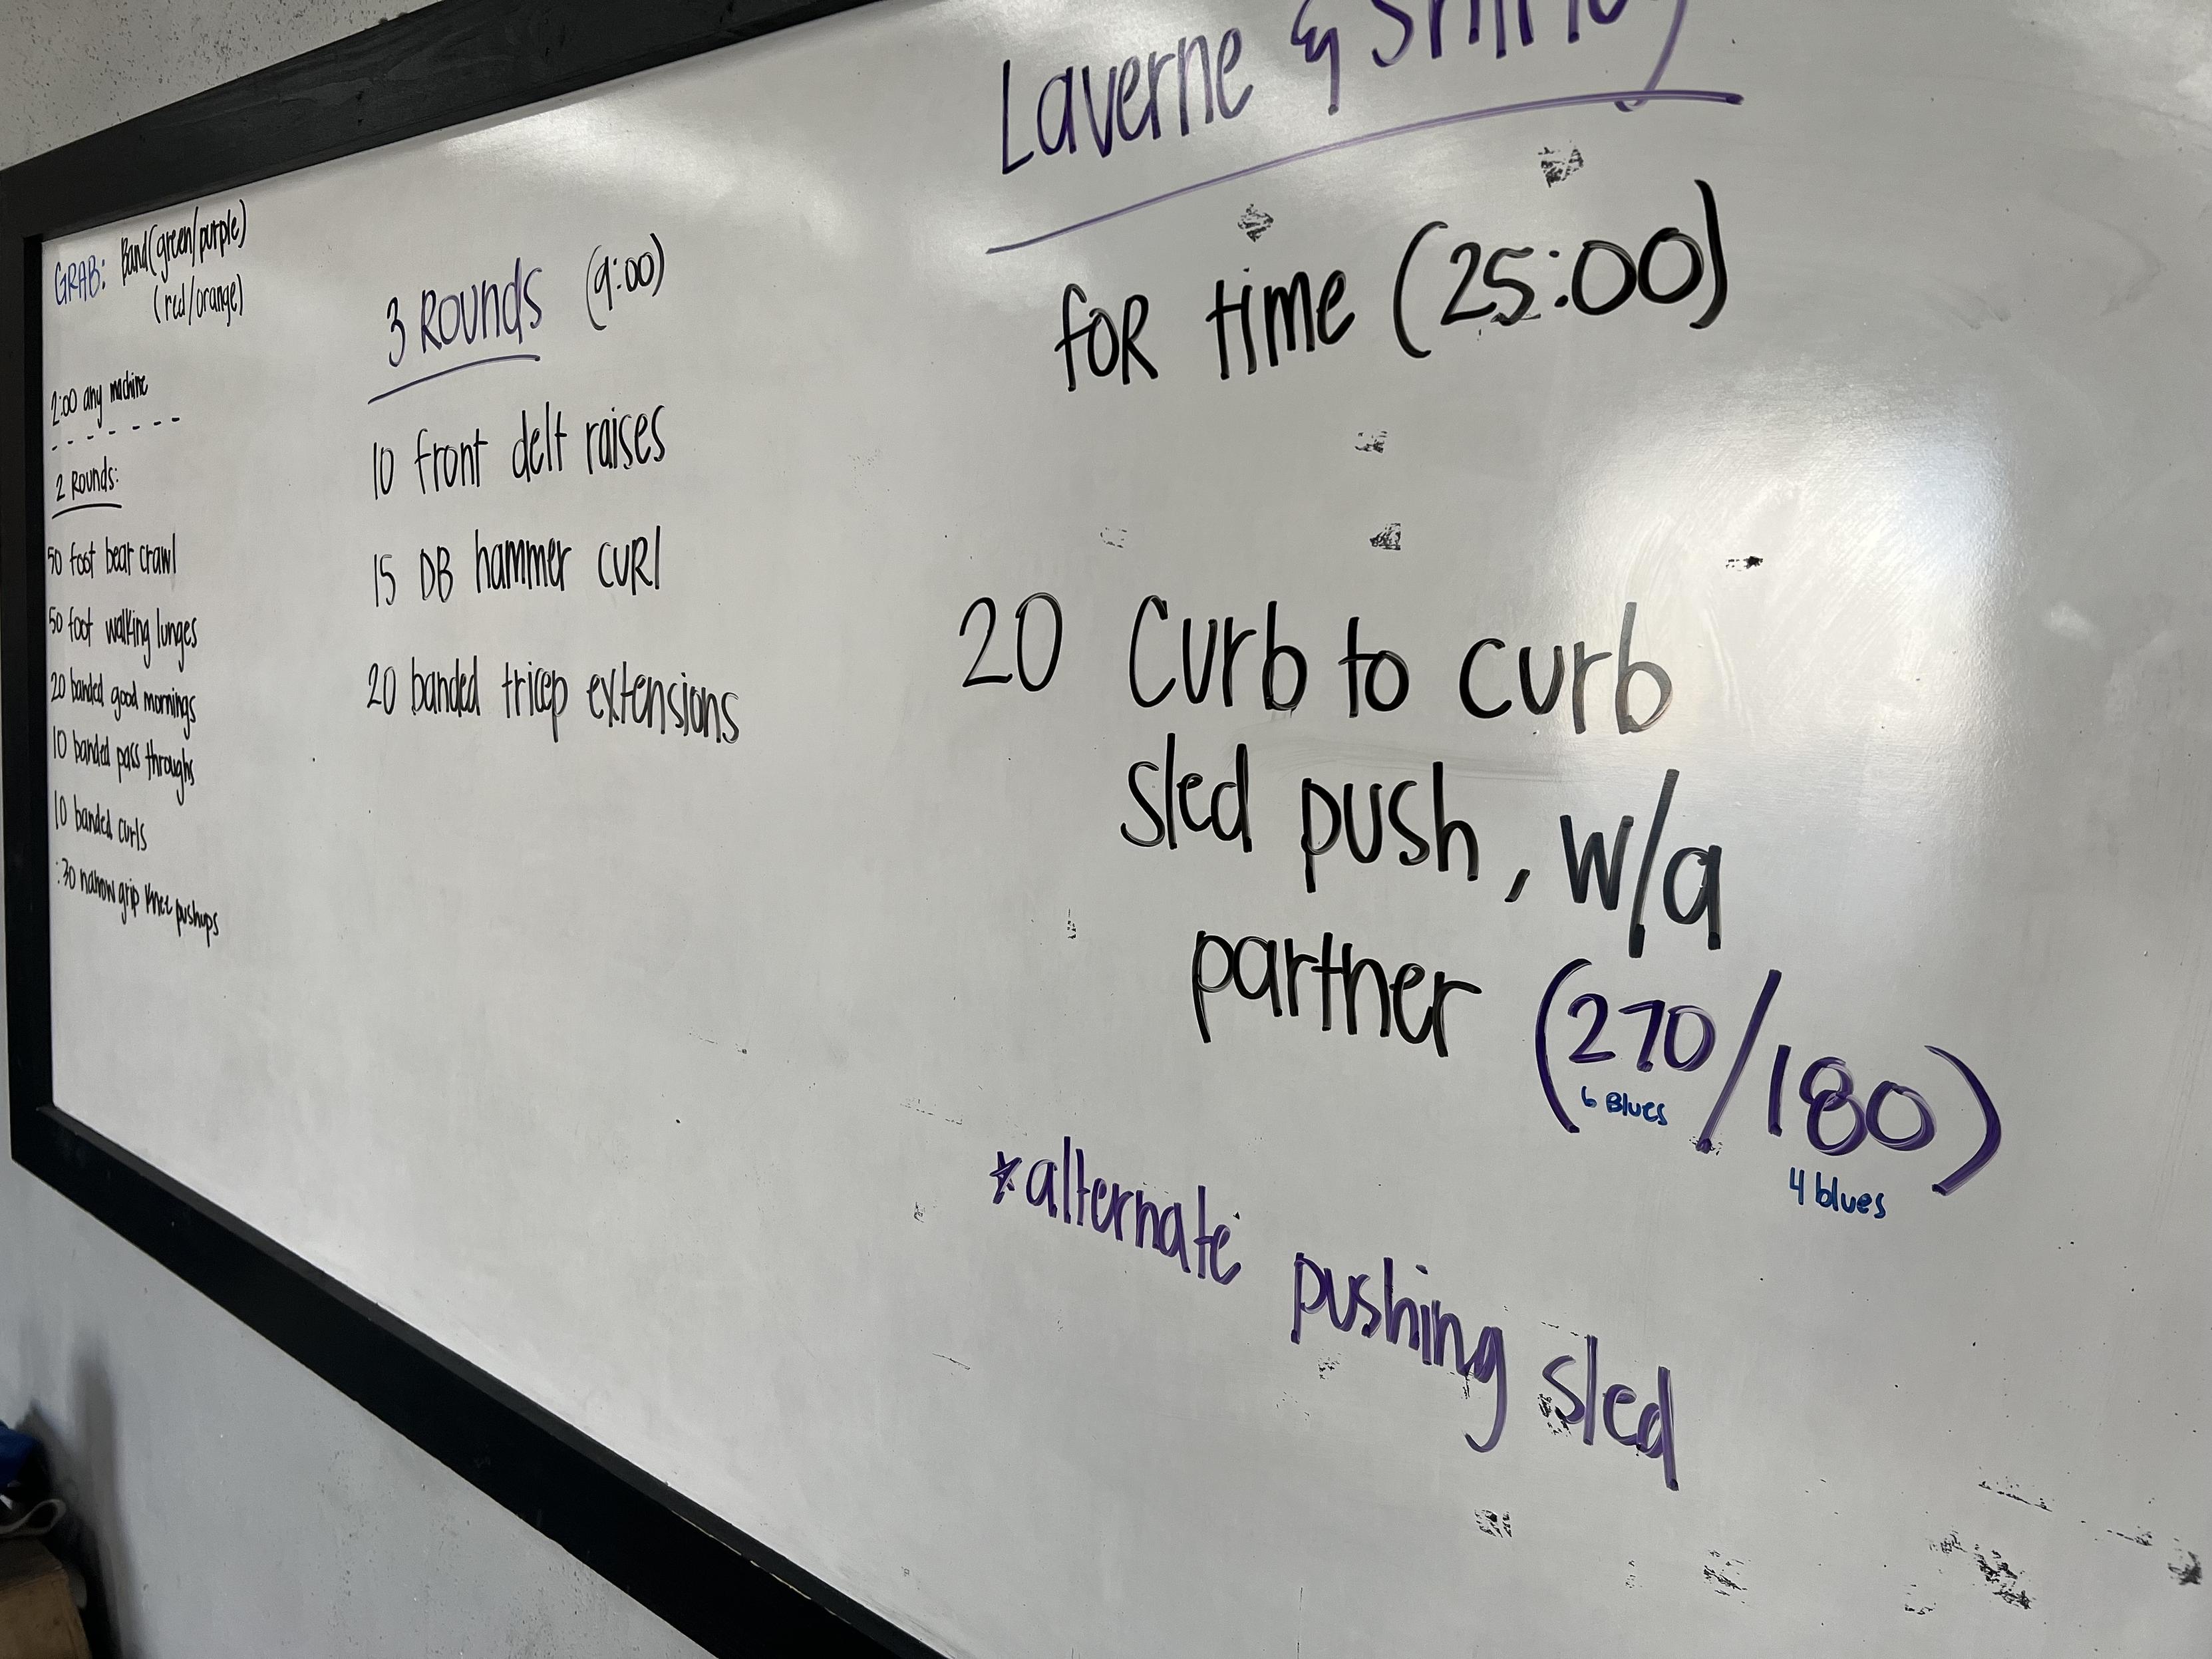 GRAB: Band (green/purple)
(red/orange)
2:00 any machine
- - - - - - -
2 Rounds:
50 foot bear crawl
50 foot walking lunges
20 banded good mornings
10 banded pass throughs
10 banded curls
:30 narrow grip knee pushups
3 ROUNDS (9:00)
10 front delt raises
15 DB hammer cuRl
20 banded tricep extensions
Laverne & Shirley
foR time (25:00)
20 Curb to curb
sled push, w/a
partner (270/180)
6 Blues
4 blues
*alternate pushing sled